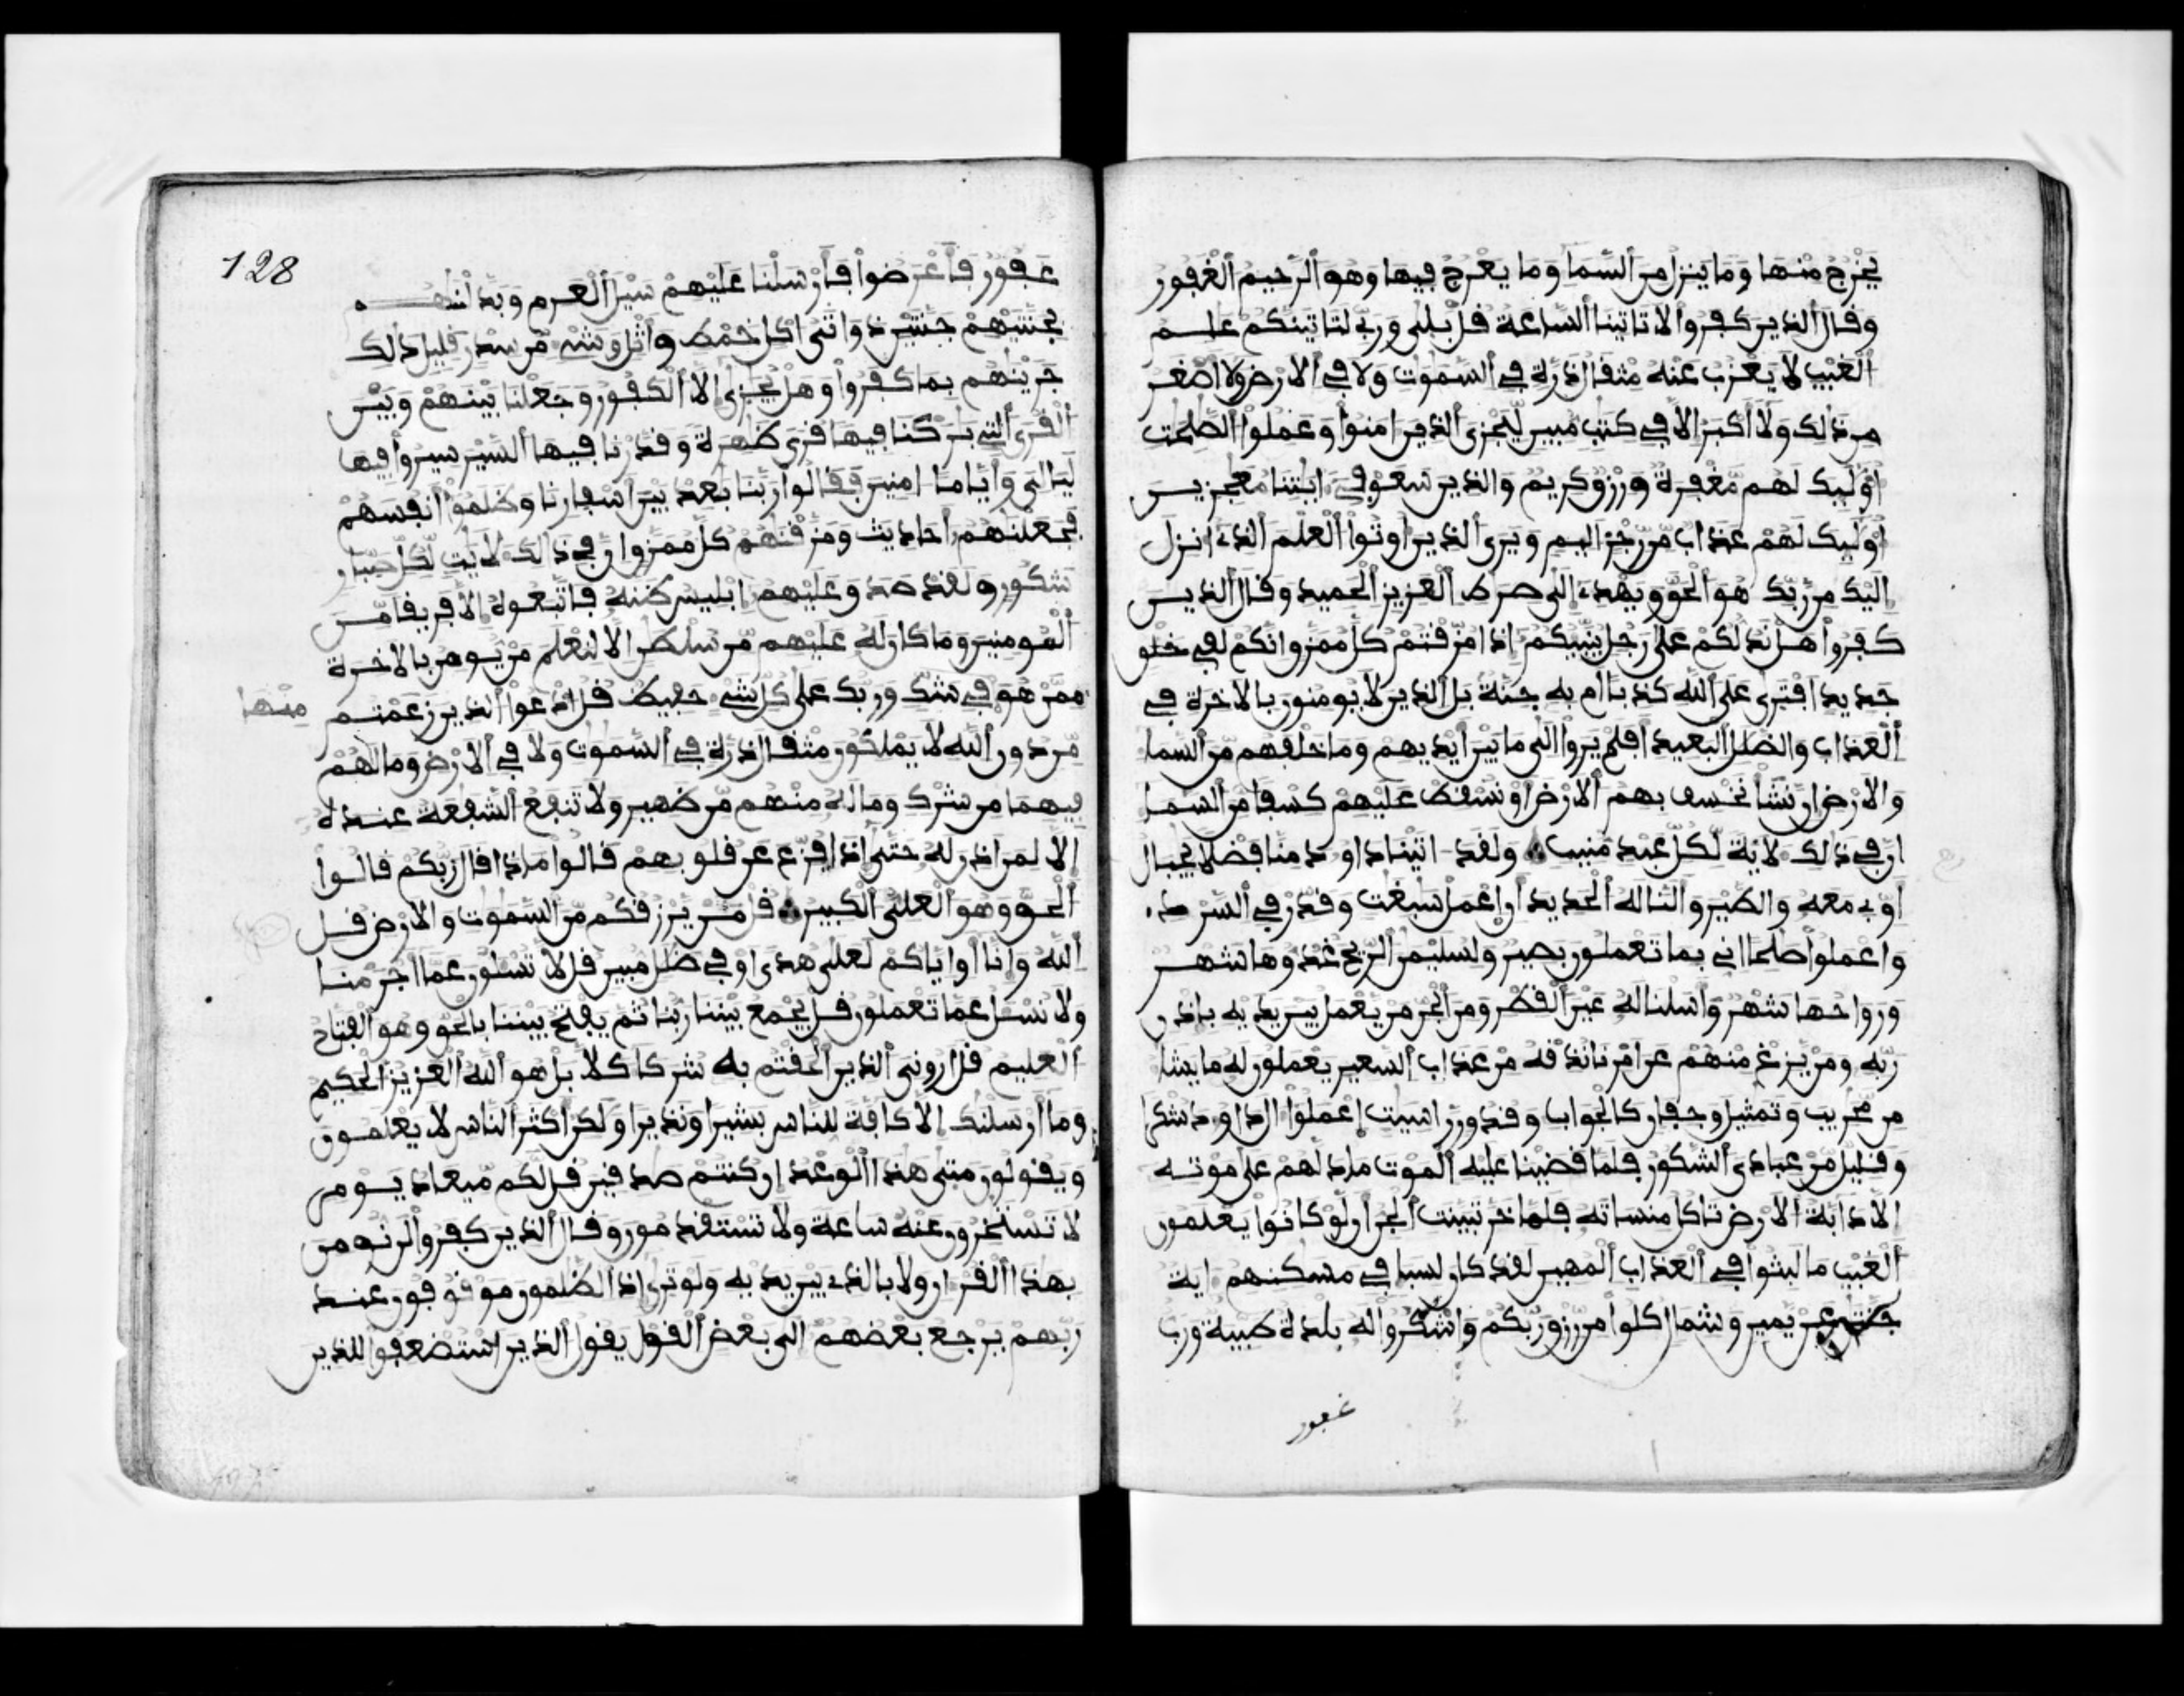 يخرج منها وما ينزل من السما وما يعرج فيها وهو الرحيم الغفور
وقال الذين كفروا لا تاتينا الساعة قل بلى وربي لتاتينكم علم
الغيب لا يعزب عنه مثقال ذرة في السموت ولا في الارض ولا اصغر
من ذلك ولا أكبر الا في كتب مبين ليجزي الذين امنوا وعملوا الصلحت
أوليك لهم مغفرة ورزق كريم والذين سعو في ايتنا معجزين
أوليك لهم عذاب من رجز اليم ويرى الذين اوتوا العلم الذي انزل
اليك من ربك هو الحق ويهدي الى صرط العزيز الحميد وقال الذين
كفروا هل ندلكم على رجل ينبيكم اذا مزقتم كل ممزق انكم لفي خلق
جديد افترى على الله كذبا ام به جنة بل الذين لا يومنون بالاخرة في
العذاب والضلل البعيد افلم يروا الى ما بين ايديهم وما خلفهم من السما
والارض ان نشا نخسف بهم الارض او نسقط عليهم كسفا من السما
ان في ذلك لاية لكل عبد منيب ولقد اتينا داوود منا فضلا يجبال
اوبي معه والطير والنا له الحديد أن اعمل سبغت وقدر في السرد
واعملوا صلحا اني بما تعملون بصير ولسليمن الريح غدوها شهر
ورواحها شهر واسلنا له عين القطر ومن الجن من يعمل بين يديه باذن
ربه ومن يزغ منهم عن امرنا نذقه من عذاب السعير يعملون له ما يشا
من محريب وتمثيل وجفان كالجواب وقدور راسيت اعملوا ال داوود شكرا
وقليل من عبادي الشكور فلما قضينا عليه الموت ما دلهم على موته
الا دابة الارض تاكل منساته فلما خر تبينت الجن ان لو كانوا يعلمون
الغيب ما لبثوا في العذاب المهين لقد كان لسبا في مسكنهم اية
جنتن عن يمين وشمال كلوا من رزق ربكم واشكروا له بلدة طيبة ورب
غفور
128
غفور فاعرضوا فارسلنا عليهم سيل العرم وبدلنهم
بجنتيهم جنتين ذواتى اكل خمط واثل وشي من سدر قليل ذلك
جزينهم بما كفروا وهل يجزى الا الكفور وجعلنا بينهم وبين
القرى التي بركنا فيها قرى ظهرة وقدرنا فيها السير سيروا فيها
ليالي واياما امنين فقالوا ربنا بعد بين اسفارنا وظلموا أنفسهم
فجعلنهم احاديث ومزقنهم كل ممزق ان في ذلك لايت لكل صبار
شكور ولقد صدق عليهم ابليس ظنه فاتبعوه الا فريقا من
المومنين وما كان له عليهم من سلطن الا لنعلم من يومن بالاخرة
ممن هو في شك وربك على كل شي حفيظ قل ادعوا الذين زعمتم
منها
من دون الله لا يملكون مثقال ذرة في السموت ولا في الارض وما لهم
فيهما من شرك وما له منهم من ظهير ولا تنفع الشفعة عنده
الا لمن اذن له حتى اذا فزع عن قلوبهم قالوا ماذا قال ربكم قالوا
الحق وهو العلي الكبير قل من يرزقكم من السموت والارض قل
الله وانا أو اياكم لعلى هدى او في ضلل مبين قل لا تسلون عما اجرمنا
ولا نسل عما تعملون قل يجمع بيننا ربنا ثم يفتح بيننا بالحق وهو الفتاح
العليم قل اروني الذين الحقتم به شركا كلا بل هو الله العزيز الحكيم
وما ارسلنك الا كافة للناس بشيرا ونذيرا ولكن اكثر الناس لا يعلمون
ويقولون متى هذا الوعد ان كنتم صدقين قل لكم ميعاد يوم
لا تستخرون عنه ساعة ولا تستقدمون وقال الذين كفروا لن نومن
بهذا القران ولا بالذي بين يديه ولو ترى اذ الظلمون موقوفون عند
ربهم يرجع بعضهم الى بعض القول يقول الذين استضعفوا للذين